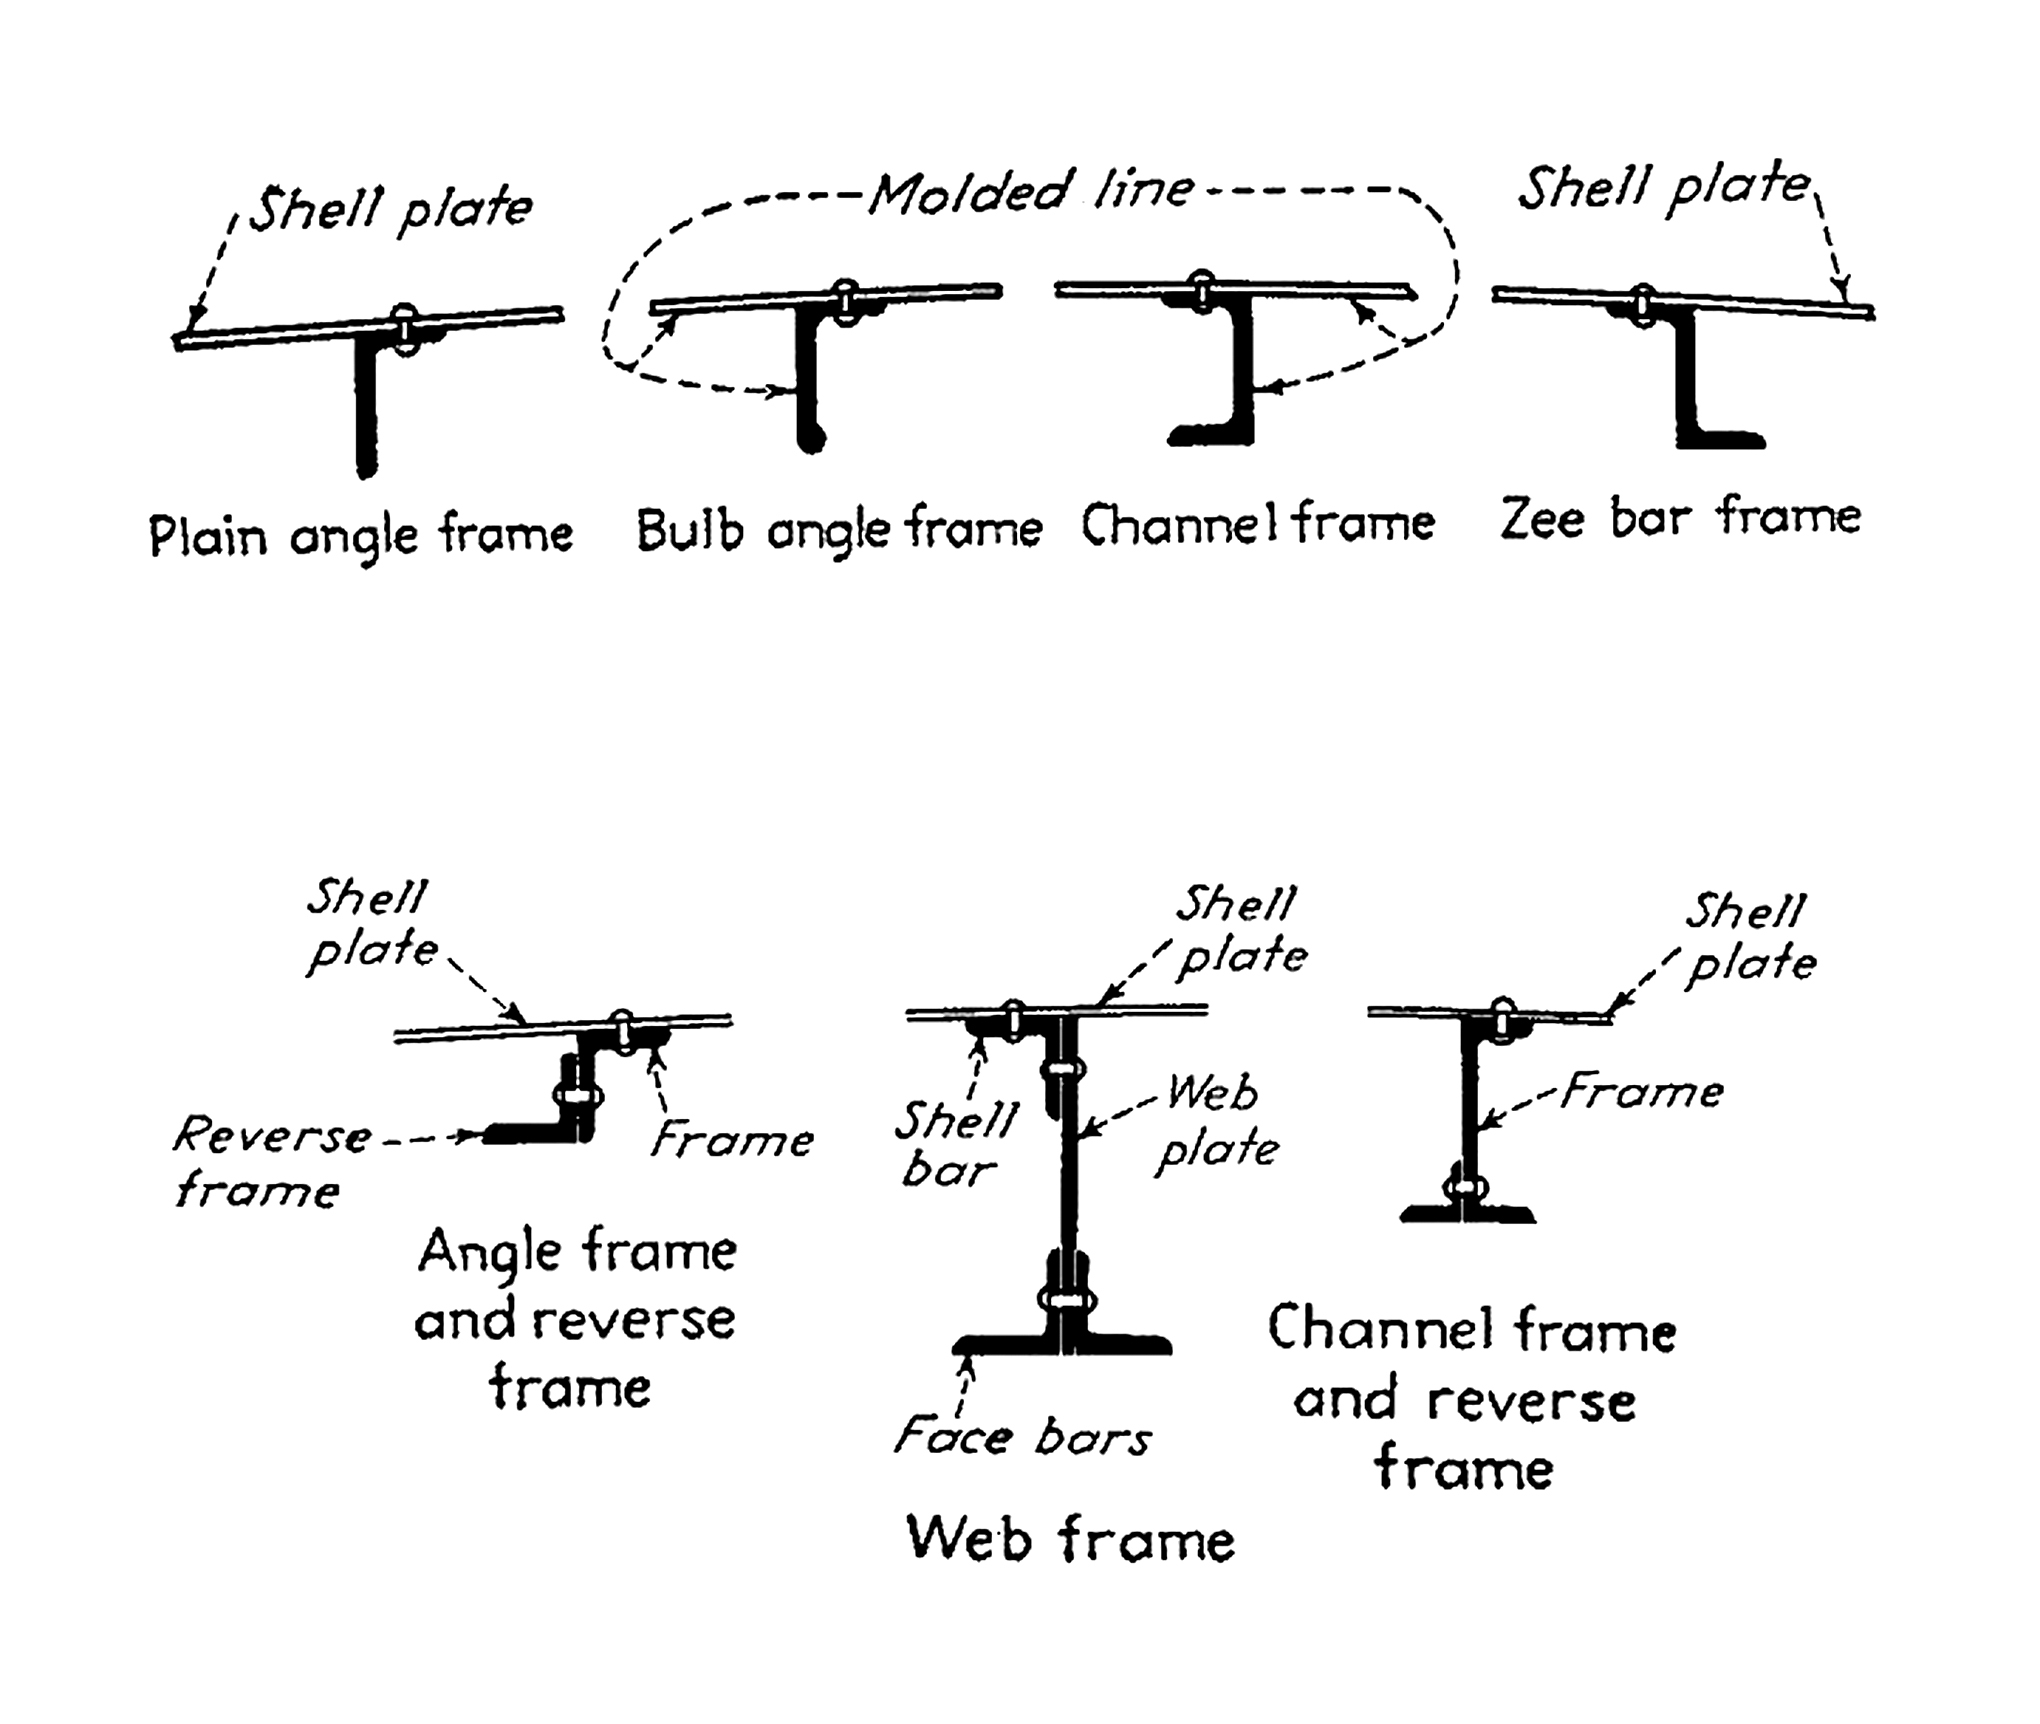 Shell plate
Molded line
Shell plate
Plain angle frame
Bulb angle frame
Channel frame
Zee bar frame
Shell
plate
Reverse
frame
Frame
Angle frame
and reverse
frame
Shell
plate
Shell
bar
Web
plate
Face bars
Web frame
Shell
plate
Frame
Channel frame
and reverse
frame